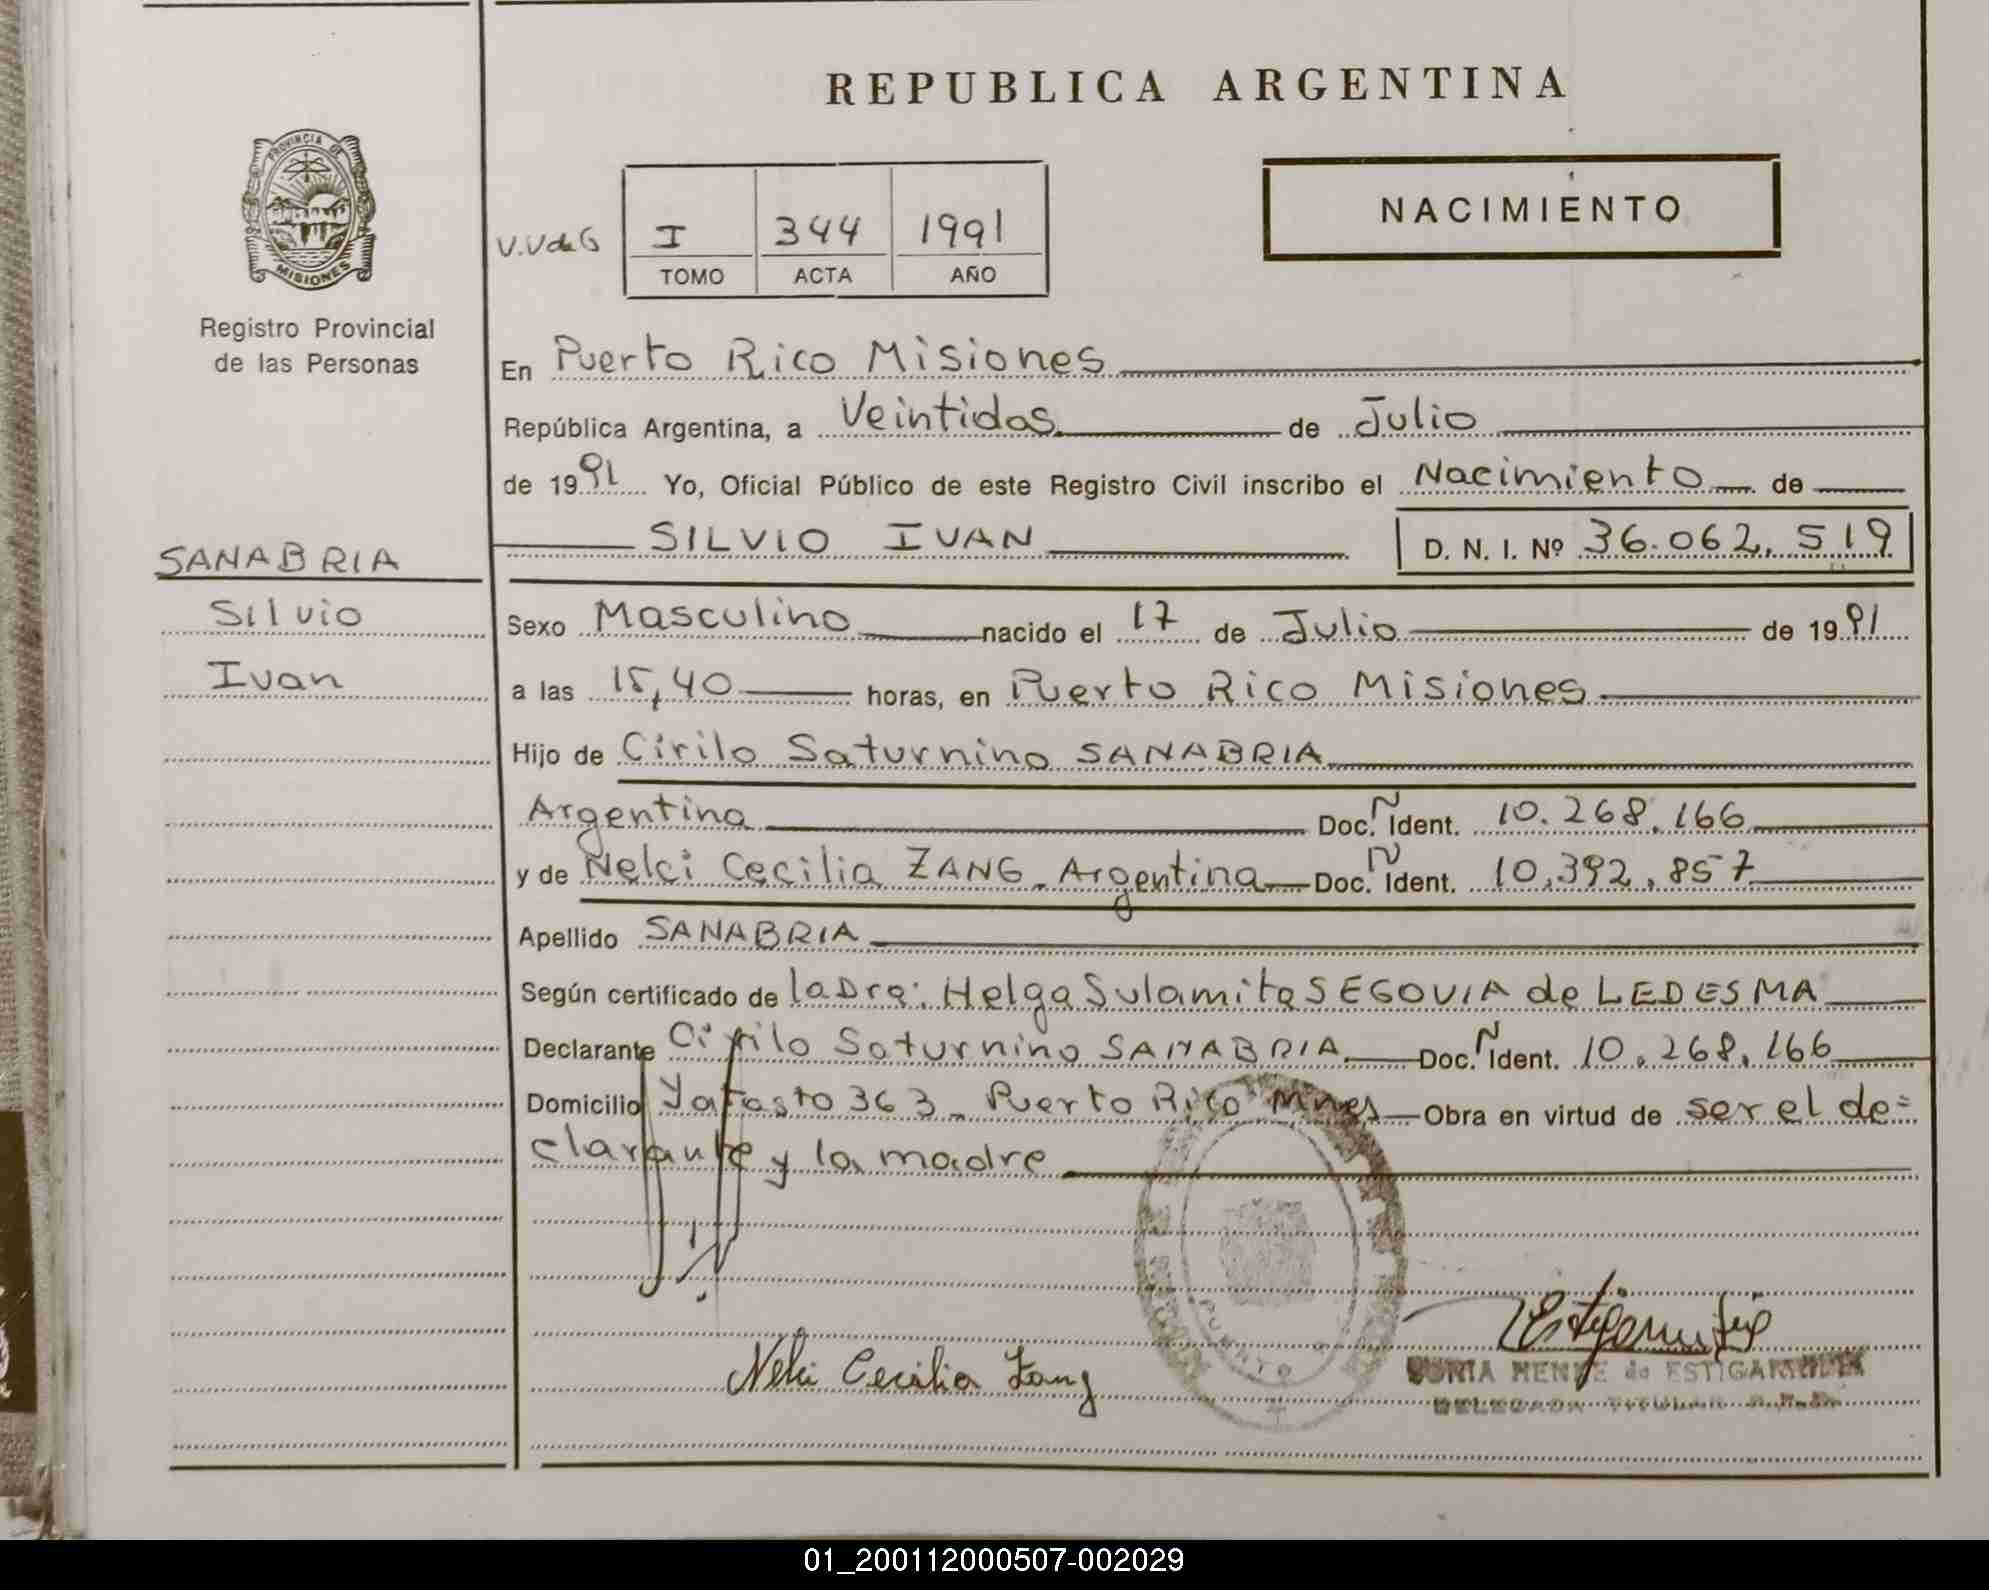 REPUBLICA ARGENTINA
PROVINCIA DE
MISIONES
NACIMIENTO
V.V de G
I 344 1991
TOMO ACTA AÑO
Registro Provincial
de las Personas
En Puerto Rico Misiones
República Argentina, a Veintidos de Julio
de 1991 Yo, Oficial Público de este Registro Civil inscribo el Nacimiento de
SILVIO IVAN D. N. I. Nº 36.062.519
SANABRIA
Silvio
Ivan
Sexo Masculino nacido el 17 de Julio de 1991
a las 15,40 horas, en Puerto Rico Misiones
Hijo de Cirilo Saturnino SANABRIA
Argentino Doc. Ñ Ident. 10.268.166
y de Nelci Cecilia ZANG - Argentina Doc. Ñ Ident. 10.392.857
Apellido SANABRIA
Según certificado de la Dra: Helga Sulamita SEGOVIA de LEDESMA
Declarante Cirilo Saturnino SANABRIA Doc. Ñ Ident. 10.268.166
Domicilio Yatasto 363 - Puerto Rico Mnes Obra en virtud de ser el de=
clarante y la madre
PUERTO
Nelci Cecilia Zang
de ESTIGARRIBIA
DELEGADA TITULAR R.P.P.
01_200112000507-002029